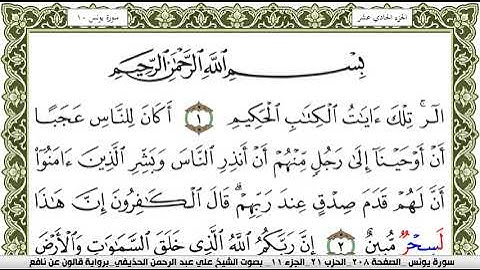 الجزء الحادي عشر
سورة يونس ١٠
بِسْمِ اللَّهِ الرَّحْمَٰنِ الرَّحِيمِ
أَلَٓرۚ تِلْكَ ءَايَٰتُ اُ۬لْكِتَٰبِ اِ۬لْحَكِيمِ ١ أَكَانَ لِلنَّاسِ عَجَبًا
أَنْ أَوْحَيْنَا إِلَىٰ رَجُلٍ مِّنْهُمْ أَنْ أَنذِرِ النَّاسَ وَبَشِّرِ الَّذِينَ ءَامَنُوٓا
أَنَّ لَهُمْ قَدَمَ صِدْقٍ عِندَ رَبِّهِمْ قَالَ الْكَٰفِرُونَ إِنَّ هَٰذَا
لَسِحْرٌ مُّبِينٌ ٢ إِنَّ رَبَّكُمُ اللَّهُ الَّذِي خَلَقَ السَّمَٰوَٰتِ وَالْأَرْضَ
سورة يونس _ الصفحة ٢٠٨_ الحزب ٢١_ الجزء ١١ _ بصوت الشيخ علي عبد الرحمن الحذيفي_ برواية قالون عن نافع